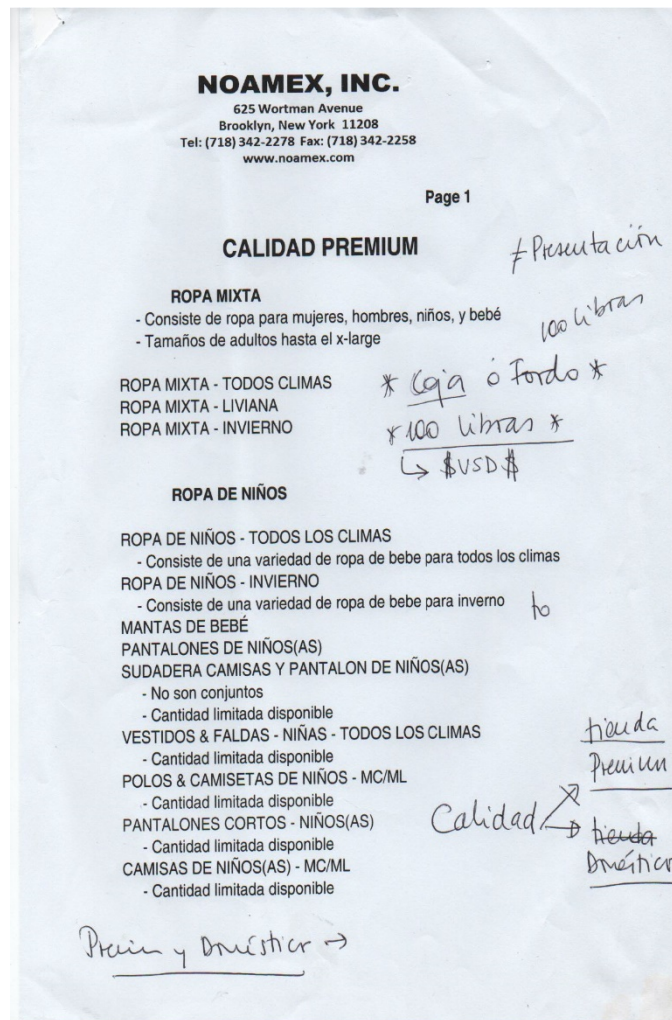 NOAMEX, INC.
625 Wortman Avenue
Brooklyn, New York 11208
Tel: (718) 342-2278 Fax: (718) 342-2258
www.noamex.com
Page 1
CALIDAD PREMIUM
≠ Presentación
ROPA MIXTA
- Consiste de ropa para mujeres, hombres, niños, y bebé
- Tamaños de adultos hasta el x-large
100 libras
ROPA MIXTA - TODOS CLIMAS
* Caja ó Fardo *
ROPA MIXTA - LIVIANA
ROPA MIXTA - INVIERNO
* 100 libras *
↳ $USD$
ROPA DE NIÑOS
ROPA DE NIÑOS - TODOS LOS CLIMAS
- Consiste de una variedad de ropa de bebe para todos los climas
ROPA DE NIÑOS - INVIERNO
- Consiste de una variedad de ropa de bebe para inverno
MANTAS DE BEBÉ
PANTALONES DE NIÑOS(AS)
SUDADERA CAMISAS Y PANTALON DE NIÑOS(AS)
- No son conjuntos
- Cantidad limitada disponible
VESTIDOS & FALDAS - NIÑAS - TODOS LOS CLIMAS
- Cantidad limitada disponible
POLOS & CAMISETAS DE NIÑOS - MC/ML
- Cantidad limitada disponible
PANTALONES CORTOS - NIÑOS(AS)
- Cantidad limitada disponible
CAMISAS DE NIÑOS(AS) - MC/ML
- Cantidad limitada disponible
tienda
Premium
Calidad
tienda
Doméstica
y Doméstica →